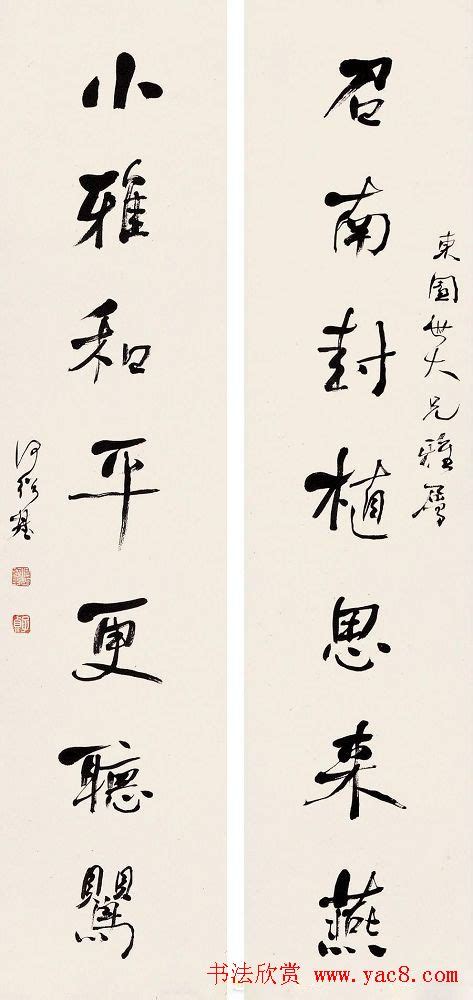 東園世大兄雅屬
召南封植思来燕
小雅和平更聽鸎
何紹基
书法欣赏 www.yac8.com